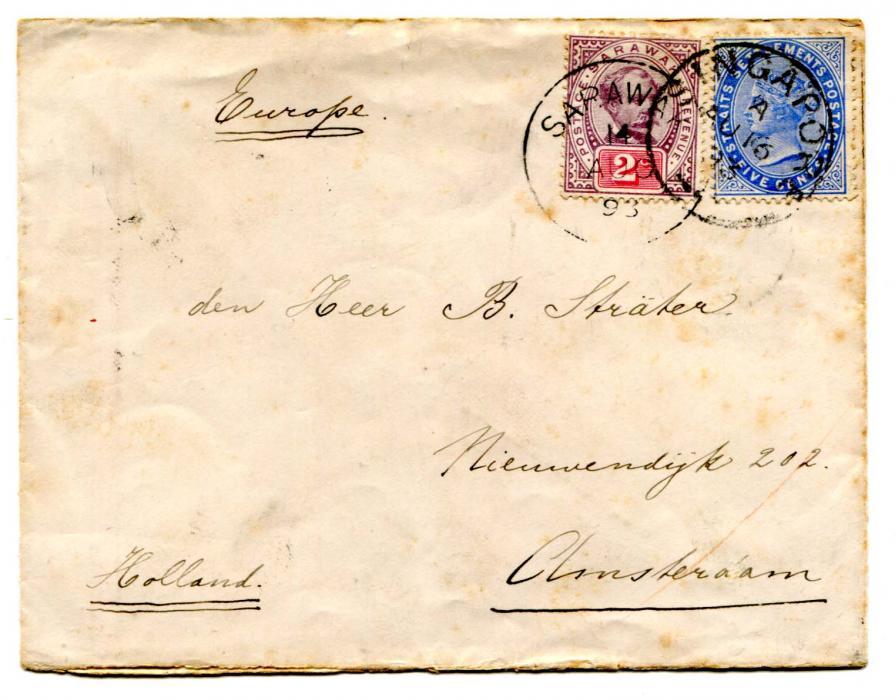 Europe.
POSTAGE SARAWAK REVENUE
2c
SARAWAK
14
93
STRAITS SETTLEMENTS POSTAGE
FIVE CENTS
SINGAPORE
A
16
den Heer B. Sträter.
Nieuwendijk 202.
Holland.
Amsterdam